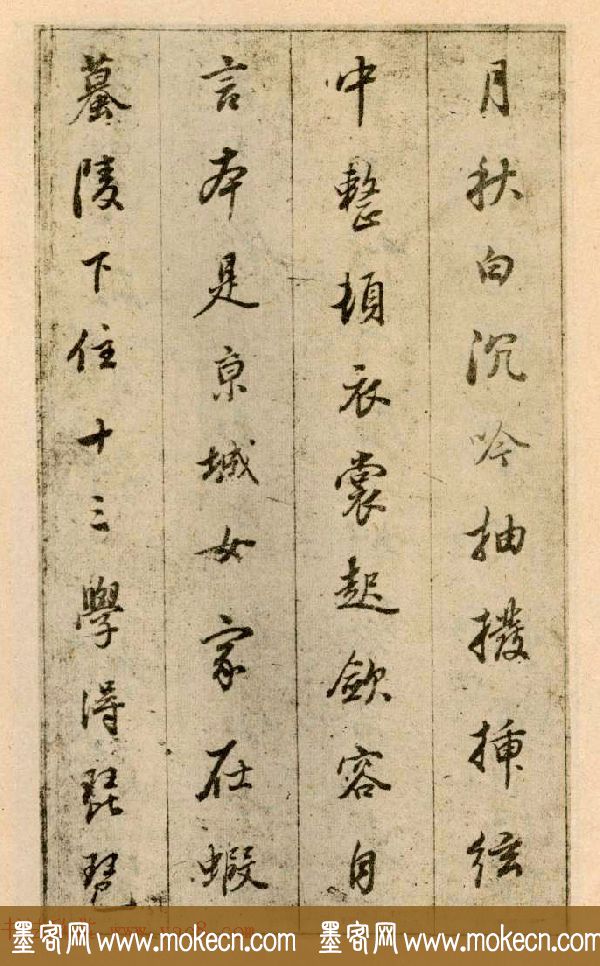 月秋白沉吟抽撥揷絃
中整頓衣裳起歛容自
言本是京城女家在蝦
蟇陵下住十三學得琵琶
墨客网 www.mokecn.com 墨客网 www.mokecn.com